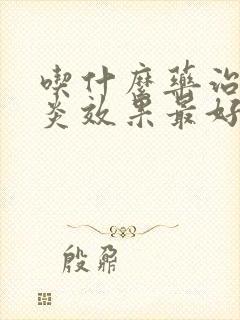 喫什麼藥治
炎效果最好
殷鼐